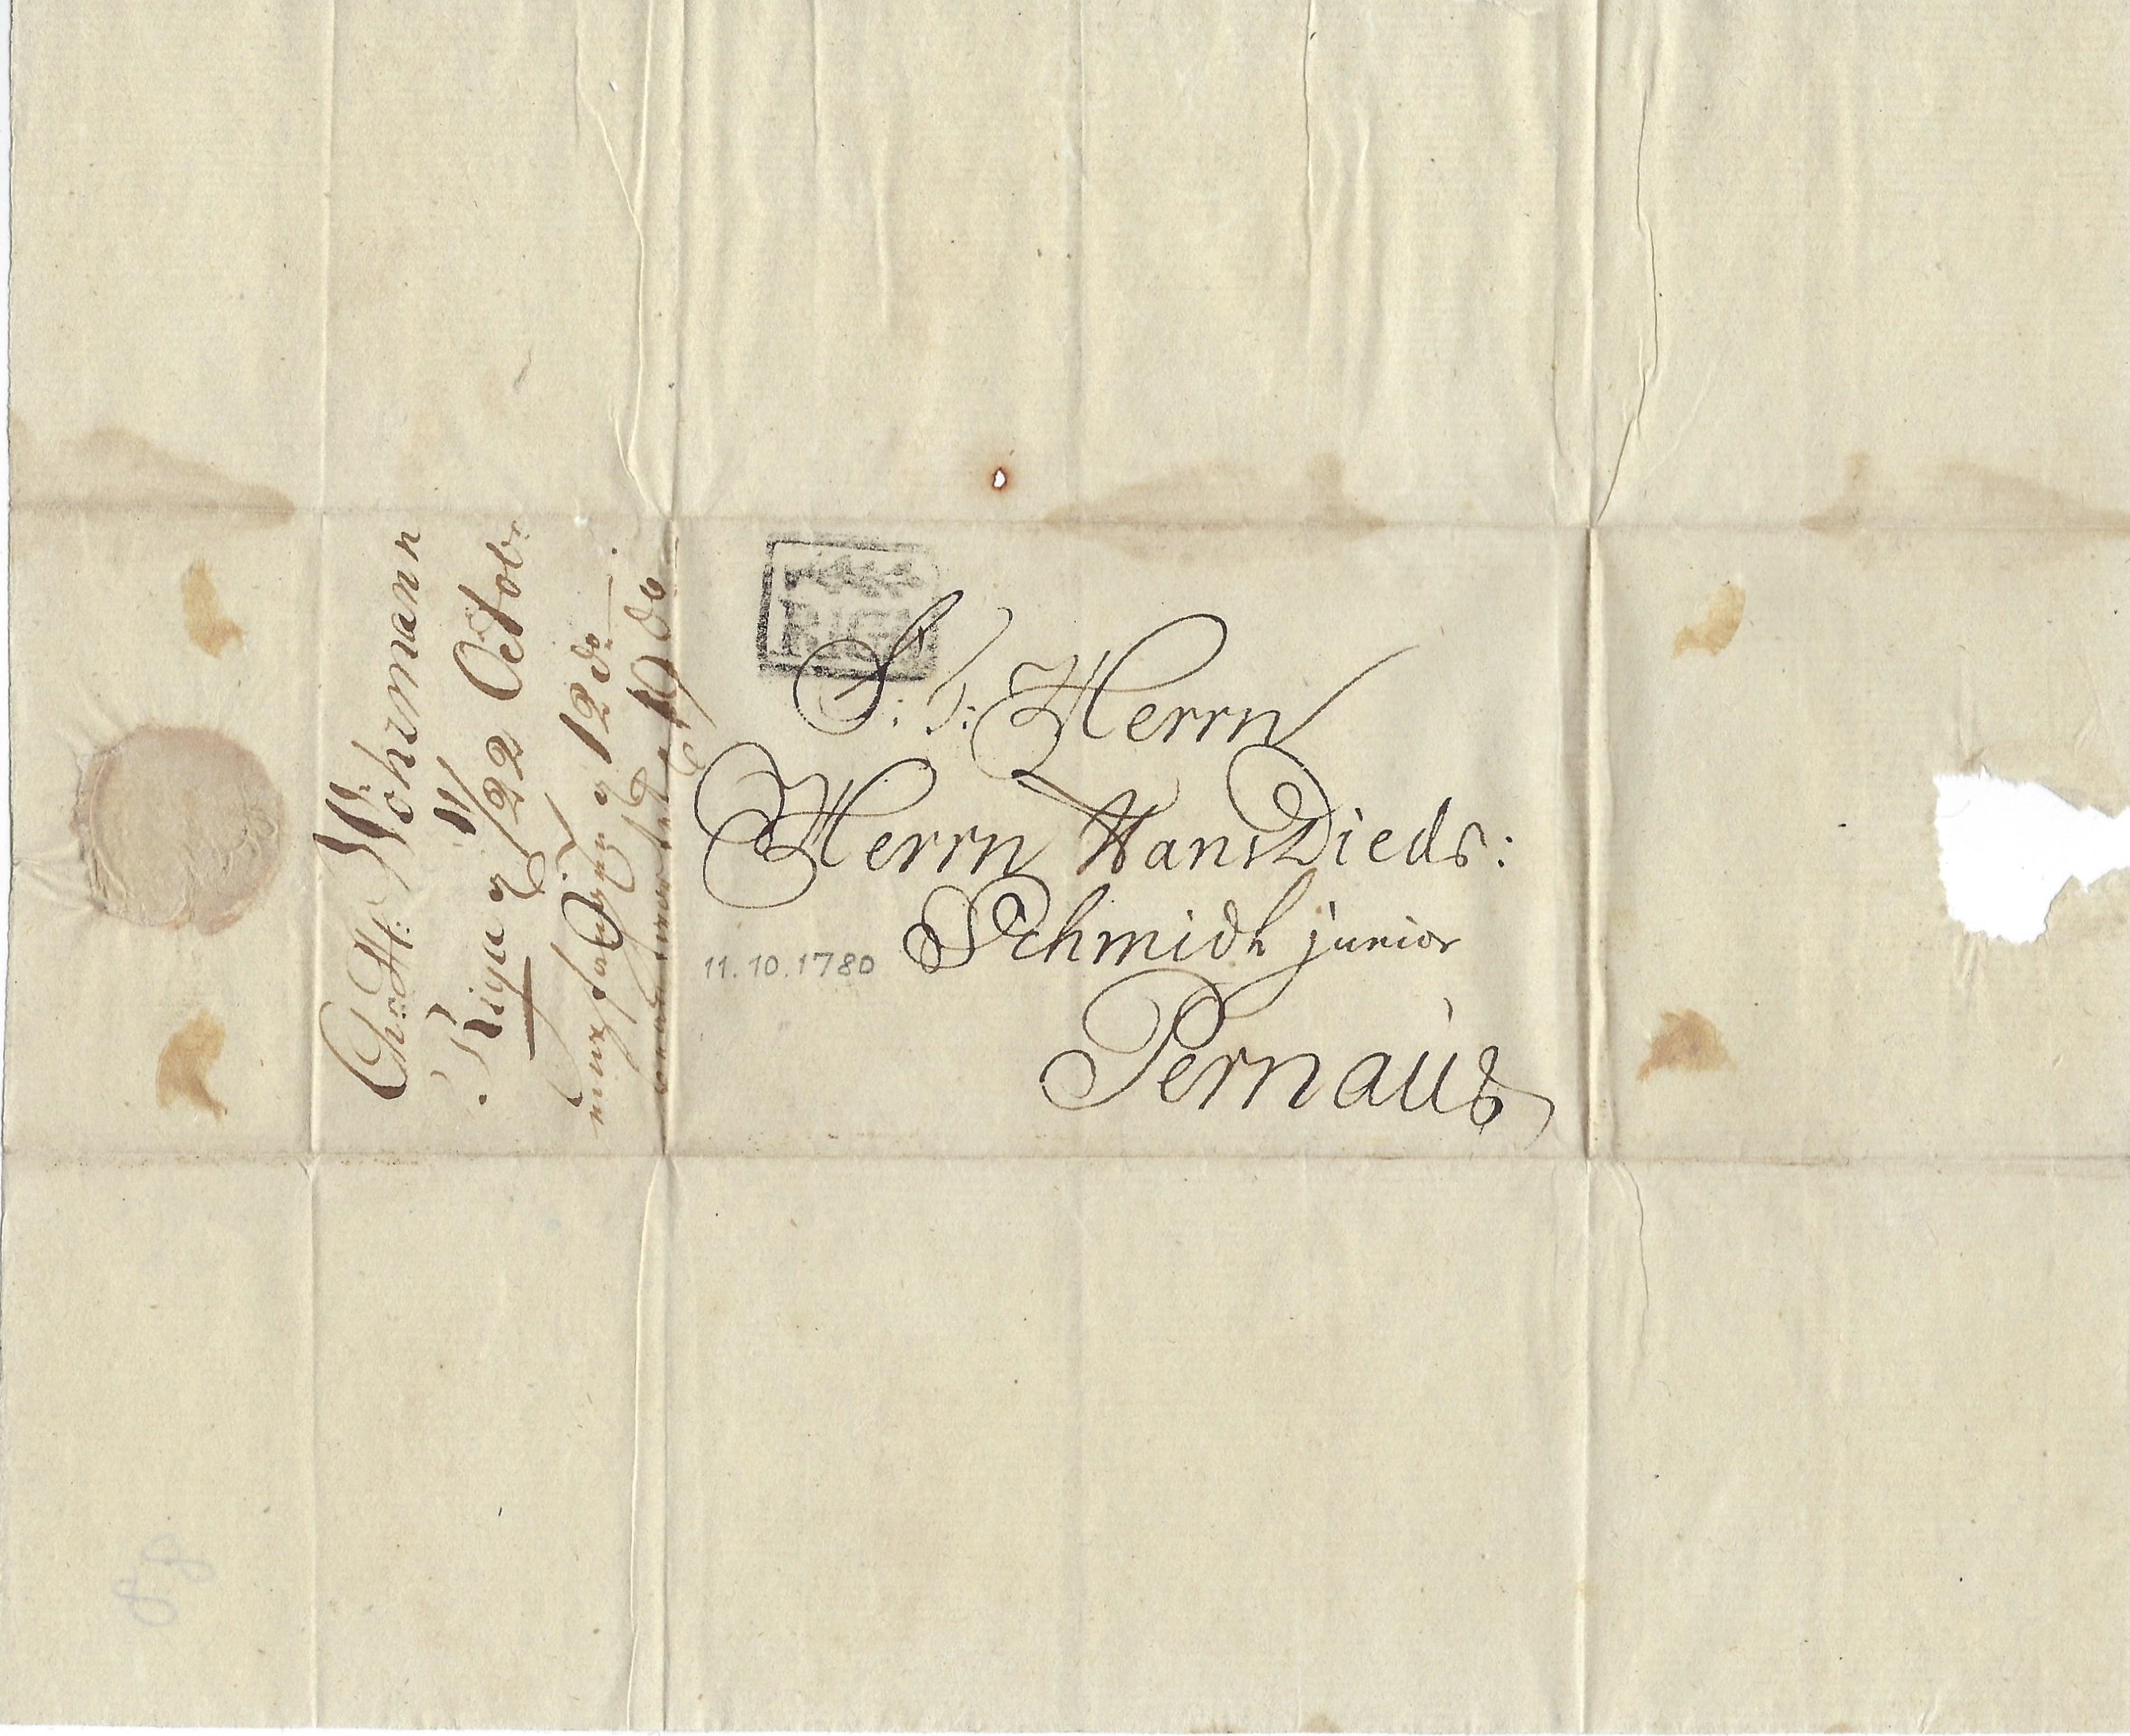 RIGA
S: T: Herrn
Herrn Hans Died:
Schmidt junior
Pernau
11.10.1780
Chr: H: Wöhrmann
Riga 11/22 Octob:
empfangen 12 do
beantwortet 19 do
88